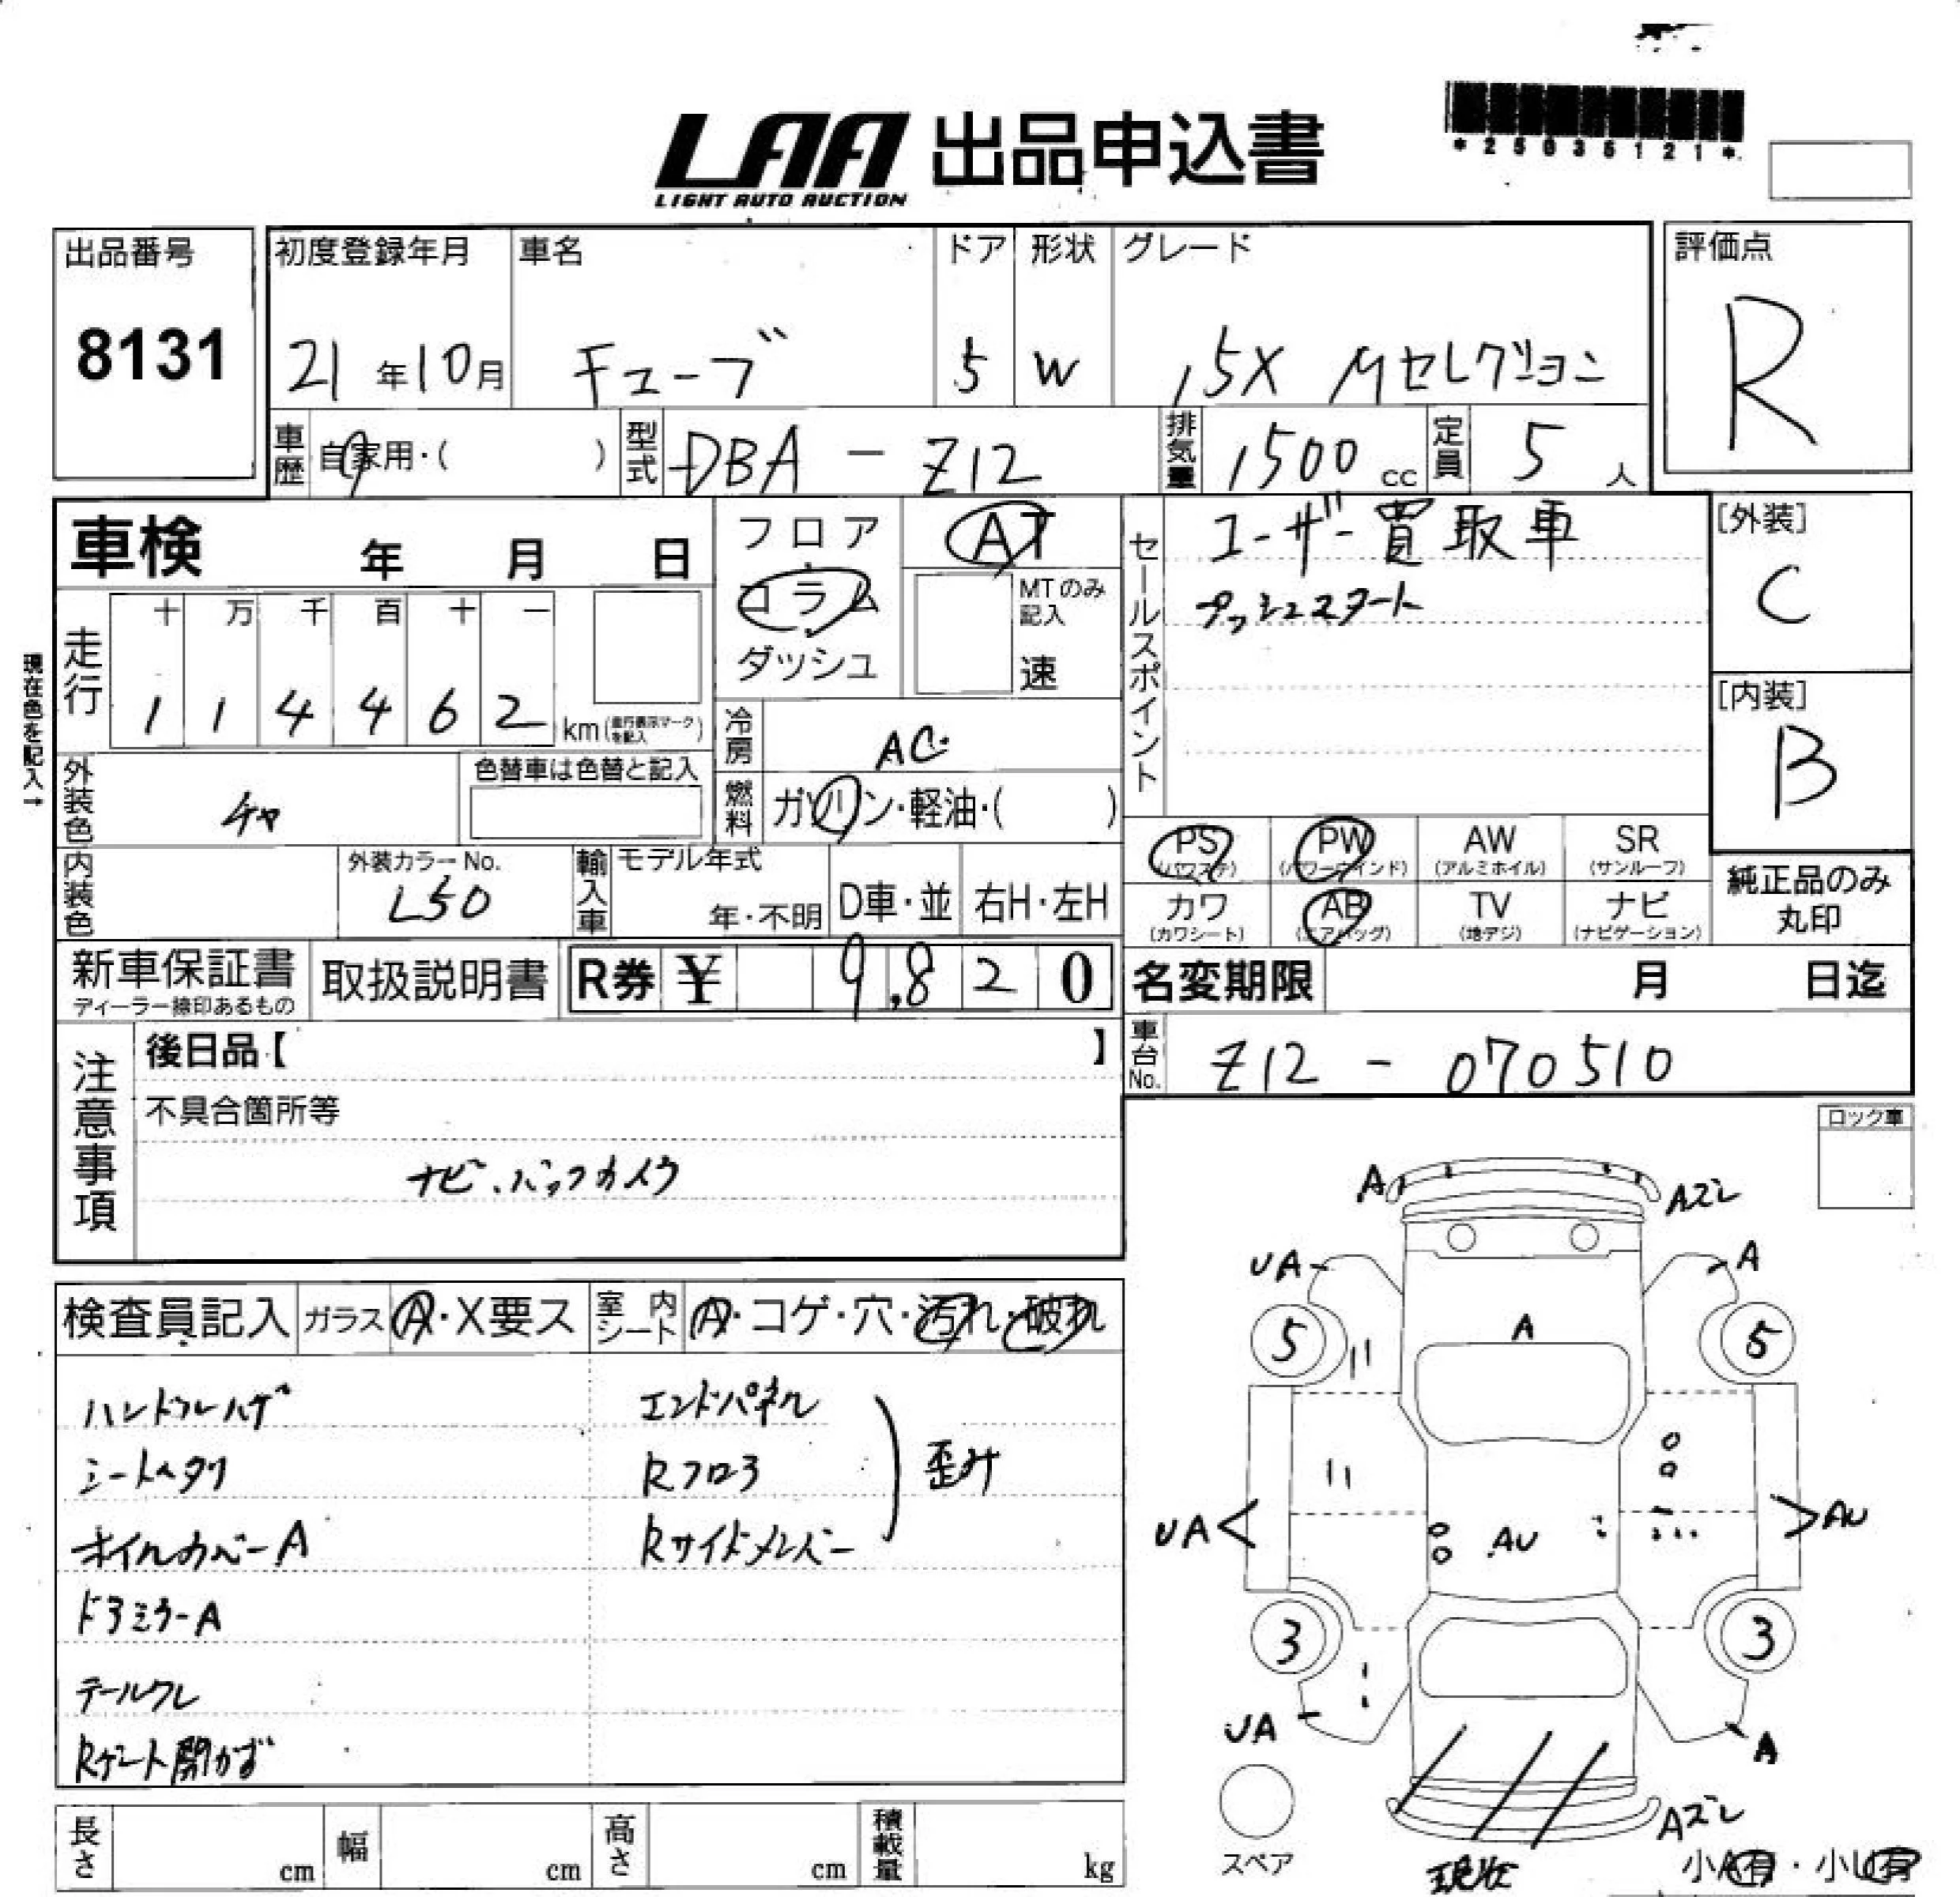 *25036121*
LAA 出品申込書
LIGHT AUTO AUCTION
出品番号
8131
初度登録年月
21年10月
車名
キューブ
ドア
5
形状
W
グレード
15X Mセレクション
評価点
R
車歴 自家用・( )
型式 DBA - Z12
排気量 1500cc
定員 5人
車検 年 月 日
フロア
コラム
ダッシュ
AT
MTのみ
記入
速
セールスポイント
ユーザー買取車
プッシュスタート
[外装]
C
[内装]
B
現在色を記入→
走行
十 万 千 百 十 一
1 1 4 4 6 2 km(走行表示マークを記入)
冷房 AC
燃料 ガソリン・軽油・( )
外装色 チャ
色替車は色替と記入
内装色
外装カラーNo.
L50
輸入車
モデル年式
年・不明
D車・並
右H・左H
PS (パワステ)
PW (パワーウインド)
AW (アルミホイル)
SR (サンルーフ)
カワ (カワシート)
AB (エアバッグ)
TV (地デジ)
ナビ (ナビゲーション)
純正品のみ
丸印
新車保証書
ディーラー捺印あるもの
取扱説明書
R券 ¥ 9,820
名変期限 月 日迄
車台No. Z12 - 070510
注意事項
後日品【 】
不具合箇所等
ナビ、バックカメラ
ロック車
検査員記入
ガラス A・X要ス
室内シート A・コゲ・穴・汚れ・破れ
ハンドルハゲ
シートヘタリ
ホイルカバーA
ドアミラーA
テールワレ
Rゲート開かず
エンドパネル
Rフロア
Rサイドメンバー
歪み
A
Aズレ
UA
A
5
A
5
UA
AU
AU
3
3
UA
A
Aズレ
スペア
現在
小A有・小U有
長さ cm
幅 cm
高さ cm
積載量 kg